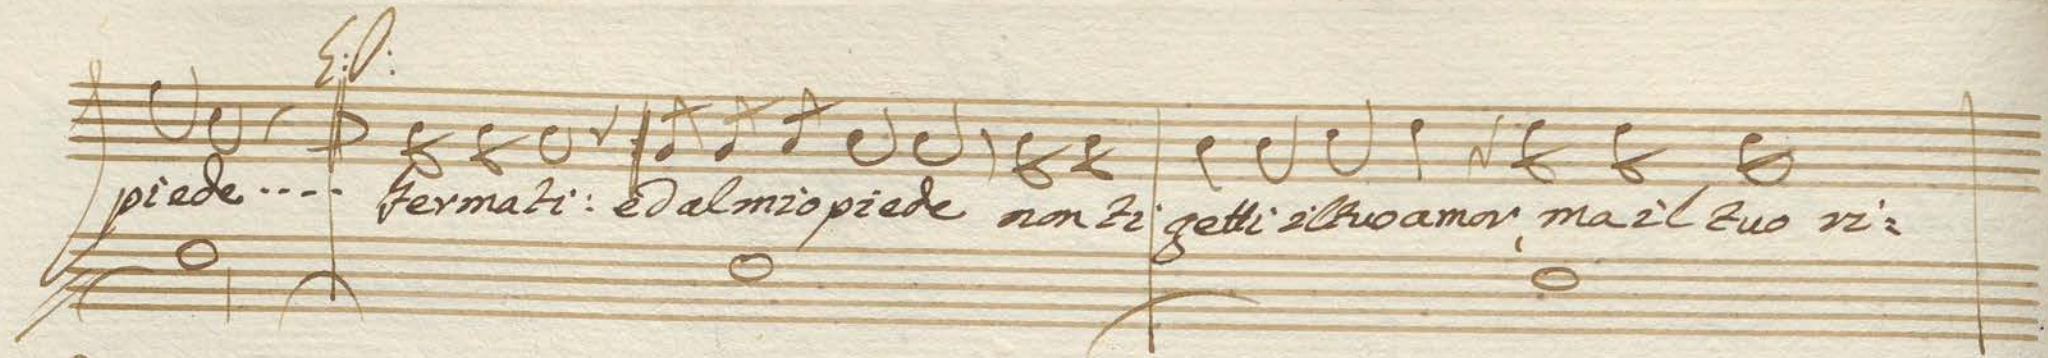 piede .... fermati: ed al mio piede non ti getti il tuo amor, ma il tuo ri=